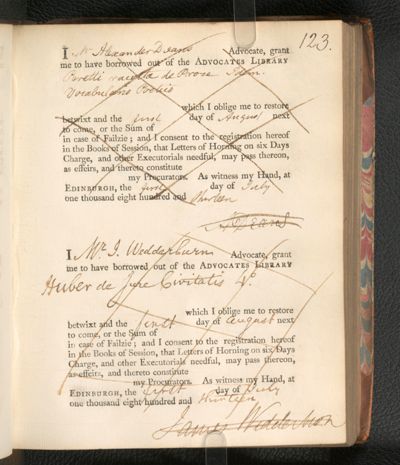 123.
I Mr Alexander Deans Advocate, grant
me to have borrowed out of the ADVOCATES LIBRARY
Baretti raccolta de Prose
Vocabulario Poetico
which I oblige me to restore
betwixt and the first day of August next
to come, or the Sum of
in case of Failzie; and I consent to the registration hereof
in the Books of Session, that Letters of Horning on six Days
Charge, and other Executorials needful, may pass thereon,
as effeirs, and thereto constitute
my Procurators. As witness my Hand, at
EDINBURGH, the first day of July
one thousand eight hundred and thirteen
A Deans
I Mr J. Wedderburn Advocate, grant
me to have borrowed out of the ADVOCATES LIBRARY
Huber de Jure Civitatis 4o.
which I oblige me to restore
betwixt and the first day of August next
to come, or the Sum of
in case of Failzie; and I consent to the registration hereof
in the Books of Session, that Letters of Horning on six Days
Charge, and other Executorials needful, may pass thereon,
as effeirs, and thereto constitute
my Procurators. As witness my Hand, at
EDINBURGH, the first day of July
one thousand eight hundred and thirteen
James Wedderburn